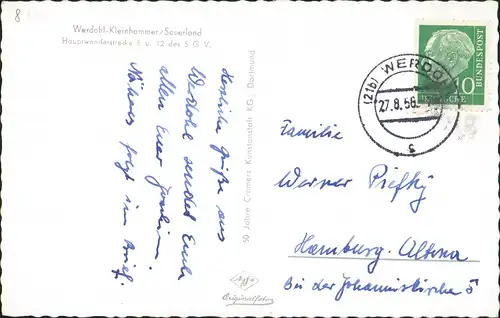 8
Werdohl-Kleinhammer/Sauerland
Hauptwanderstrecke 6 u. 12 des S G V.
Herzliche Grüße aus
Werdohl sendet Euch
allen Euer Joachim.
Näheres folgt im Brief.
50 Jahre Cramers Kunstanstalt KG., Dortmund
Originalfoto
(21b) WERDOHL
27.8.56.
s
DEUTSCHE BUNDESPOST
10
Familie
Werner Piefky
Hamburg-Altona
Bei der Johanniskirche 5